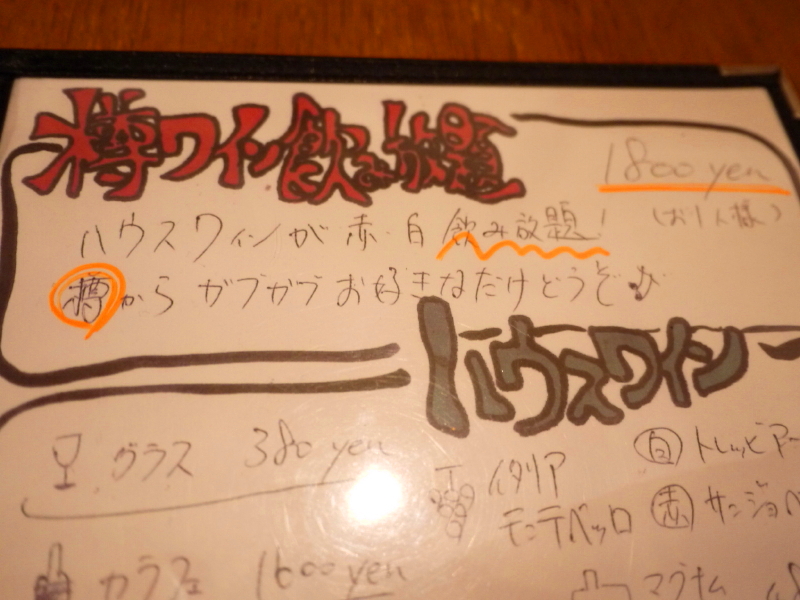 樽ワイン飲み放題
1800yen
ハウスワインが赤・白飲み放題!
(お1人様)
樽からガブガブお好きなだけどうぞ♪
ハウスワイン
グラス 380yen
イタリア
モンテベッロ
白 トレッビアー
赤 サンジョベ
カラフェ 1600yen
マグナム